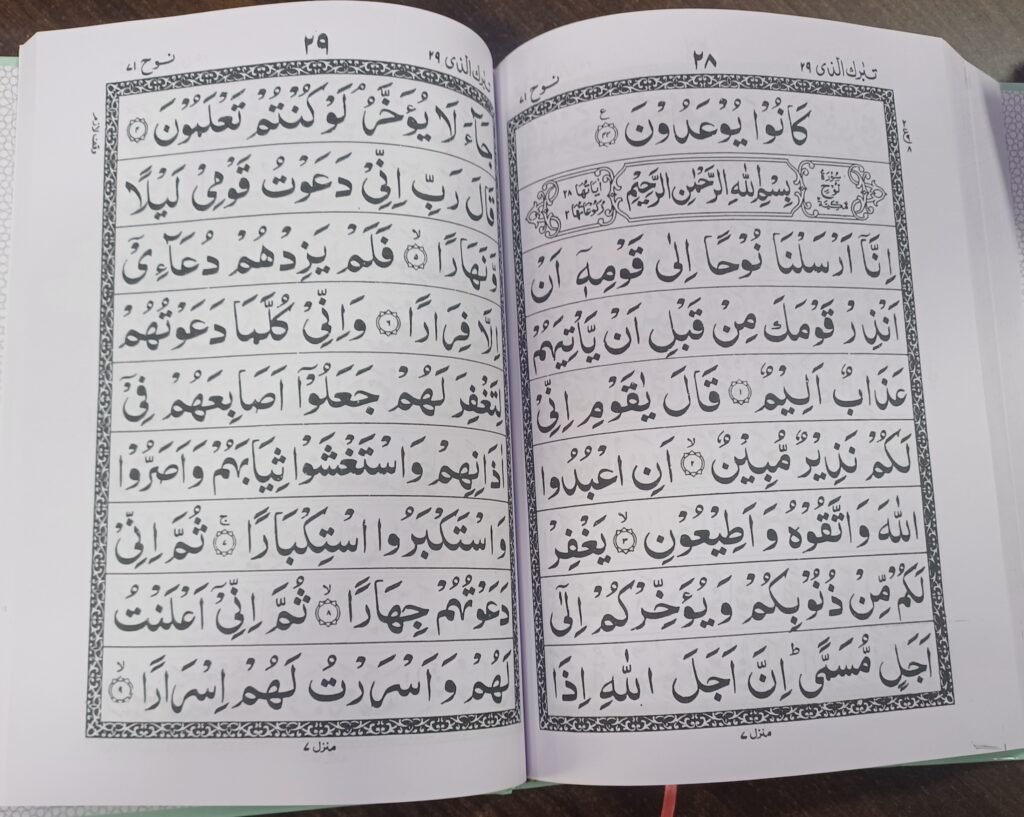 تبٰرك الذی ۲۹
۲۸
نوح ۷۱
كَانُوْا يُوْعَدُوْنَ ۴۴
سُوْرَةُ نُوْحٍ مَّكِّيَّةٌ
بِسْمِ اللهِ الرَّحْمٰنِ الرَّحِيْمِ
اٰيَاتُهَا ۲۸
رُكُوْعَاتُهَا ۲
اِنَّآ اَرْسَلْنَا نُوْحًا اِلٰى قَوْمِهٖٓ اَنْ
اَنْذِرْ قَوْمَكَ مِنْ قَبْلِ اَنْ يَّاْتِيَهُمْ
عَذَابٌ اَلِيْمٌ ۱ قَالَ يٰقَوْمِ اِنِّيْ
لَكُمْ نَذِيْرٌ مُّبِيْنٌ ۲ اَنِ اعْبُدُوا
اللهَ وَاتَّقُوْهُ وَاَطِيْعُوْنِ ۳ يَغْفِرْ
لَكُمْ مِّنْ ذُنُوْبِكُمْ وَيُؤَخِّرْكُمْ اِلٰٓى
اَجَلٍ مُّسَمًّى ؕ اِنَّ اَجَلَ اللهِ اِذَا
منزل ۷
تبٰرك الذی ۲۹
۲۹
نوح ۷۱
جَآءَ لَا يُؤَخَّرُ لَوْ كُنْتُمْ تَعْلَمُوْنَ ۴
قَالَ رَبِّ اِنِّيْ دَعَوْتُ قَوْمِيْ لَيْلًا
وَّنَهَارًا ۵ فَلَمْ يَزِدْهُمْ دُعَآءِيْٓ
اِلَّا فِرَارًا ۶ وَاِنِّيْ كُلَّمَا دَعَوْتُهُمْ
لِتَغْفِرَ لَهُمْ جَعَلُوْٓا اَصَابِعَهُمْ فِيْٓ
اٰذَانِهِمْ وَاسْتَغْشَوْا ثِيَابَهُمْ وَاَصَرُّوْا
وَاسْتَكْبَرُوا اسْتِكْبَارًا ۷ ثُمَّ اِنِّيْ
دَعَوْتُهُمْ جِهَارًا ۸ ثُمَّ اِنِّيْٓ اَعْلَنْتُ
لَهُمْ وَاَسْرَرْتُ لَهُمْ اِسْرَارًا ۹
منزل ۷